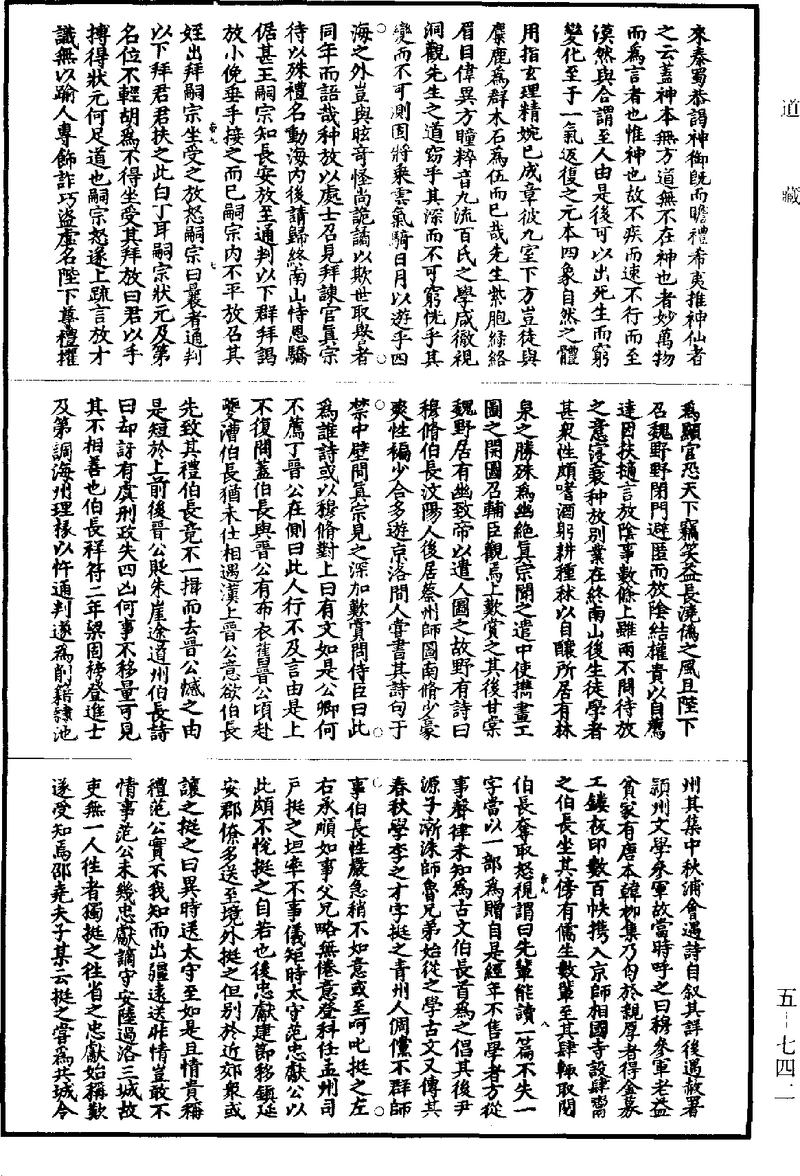 道藏
來秦蜀恭謁神御既而瞻禮希夷推神仙者
之云蓋神本無方道無不在神也者妙萬物
而為言者也惟神也故不疾而速不行而至
漠然與合謂至人由是後可以出死生而窮
變化至于一氣返復之元本四象自然之體
用指玄理精婉已成章彼九室下方豈徒與
麋鹿為群木石為伍而已哉先生紫胞絛絡
眉目偉異方瞳粹音九流百氏之學咸徹視
洞觀先生之道窈乎其深而不可窮恍乎其
變而不可測固將乘雲氣騎日月以遊乎四
海之外豈與眩竒怪尚詭譎以欺世取譽者
同年而語哉种放以處士召見拜諫官真宗
待以殊禮名動海內後請歸終南山恃恩驕
倨甚王嗣宗知長安放至通判以下群拜謁
放小俛垂手接之而已嗣宗內不平放召其
姪出拜嗣宗坐受之放怒嗣宗曰曩者通判
以下拜君君扶之此白丁耳嗣宗狀元及第
名位不輕胡為不得坐受其拜放曰君以手
搏得狀元何足道也嗣宗怒遂上疏言放才
識無以踰人專飾詐巧盜虛名陛下尊禮擢
為顯官恐天下竊笑益長澆僞之風且陛下
召魏野野閉門避匿而放陰結權貴以自薦
達因抉擿言放陰事數條上雖兩不問待放
之意浸衰种放別業在終南山後生徒學者
甚衆性頗嗜酒躬耕種秫以自釀所居有林
泉之勝殊為幽絶真宗聞之遣中使攜畫工
圖之開圖召輔臣觀焉上歎賞之其後甘棠
魏野居有幽致帝以遣人圖之故野有詩曰
穆脩伯長汶陽人後居蔡州師圖南脩少豪
爽性褊少合多遊京洛間人嘗書其詩句于
禁中壁間真宗見之深加歎賞問侍臣曰此
為誰詩或以穆脩對上曰有文如是公卿何
不薦丁晉公在側曰此人行不及言由是上
不復問蓋伯長與晉公有布衣舊晉公頃赴
夔漕伯長猶未仕相遇漢上晉公意欲伯長
先致其禮伯長竟不一揖而去晉公憾之由
是短於上前後晉公貶朱崖途道州伯長詩
曰却訝有虞刑政失四凶何事不移量可見
其不相善也伯長祥符二年梁固榜登進士
及第調海州理掾以忤通判遂為削籍隸池
州其集中秋浦會遇詩自叙其詳後遇赦署
潁州文學參軍故當時呼之曰穆參軍老益
貧家有唐本韓柳集乃丐於親厚者得金募
工鏤板印數百帙携入京師相國寺設肆鬻
之伯長坐其傍有儒生數輩至其肆輙取閱
伯長奪取怒視謂曰先輩能讀一篇不失一
字當以一部為贈自是經年不售學者方從
事聲律未知為古文伯長首為之倡其後尹
源子漸洙師魯兄弟始從之學古文又傳其
春秋學李之才字挺之青州人倜儻不群師
事伯長性嚴急稍不如意或至呵叱挺之左
右承順如事父兄略無倦意登科任孟州司
戶挺之坦率不事儀矩時太守范忠獻公以
此頗不悅挺之自若也後忠獻建節移鎮延
安郡僚多送至境外挺之但別於近郊衆或
讓之挺之曰異時送太守至如是且情貴稱
禮范公實不我知而出疆遠送非情豈敢不
情事范公未幾忠獻謫守安陸過洛三城故
吏無一人往者獨挺之往省之忠獻始稱歎
遂受知焉邵堯夫子某云挺之嘗為共城令
五-七四二